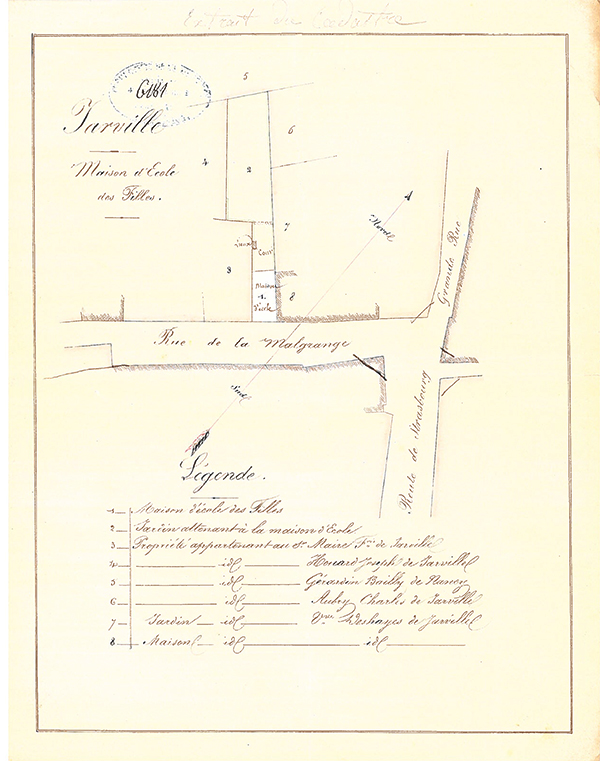 Extrait du Cadastre
6181
Jarville
Maison d'Ecole
des Filles.
5
6
4
2
7
Nord
Grande Rue
Cour
3
Maison
1.
d'école
8
Rue de la Malgrange
Sud
Route de Strasbourg
Légende.
1 Maison d'école des Filles
2 Jardin attenant à la maison d'Ecole
3 Propriété appartenant au Sr Maire Fçois de Jarville
4 id Houard Joseph de Jarville
5 id Gérardin Bailly de Nancy
6 id Aubry Charles de Jarville
7 Jardin id Vve Deshayes de Jarville
8 Maison id id